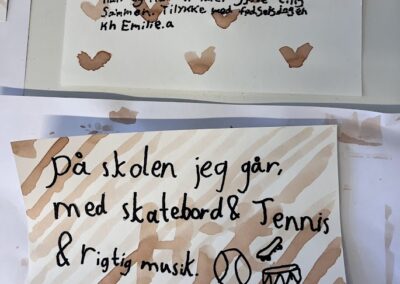 sammen. Tilykke med fødselsdagen
Kh Emilie.a
på skolen jeg går,
med skatebord & Tennis
& rigtig musik.